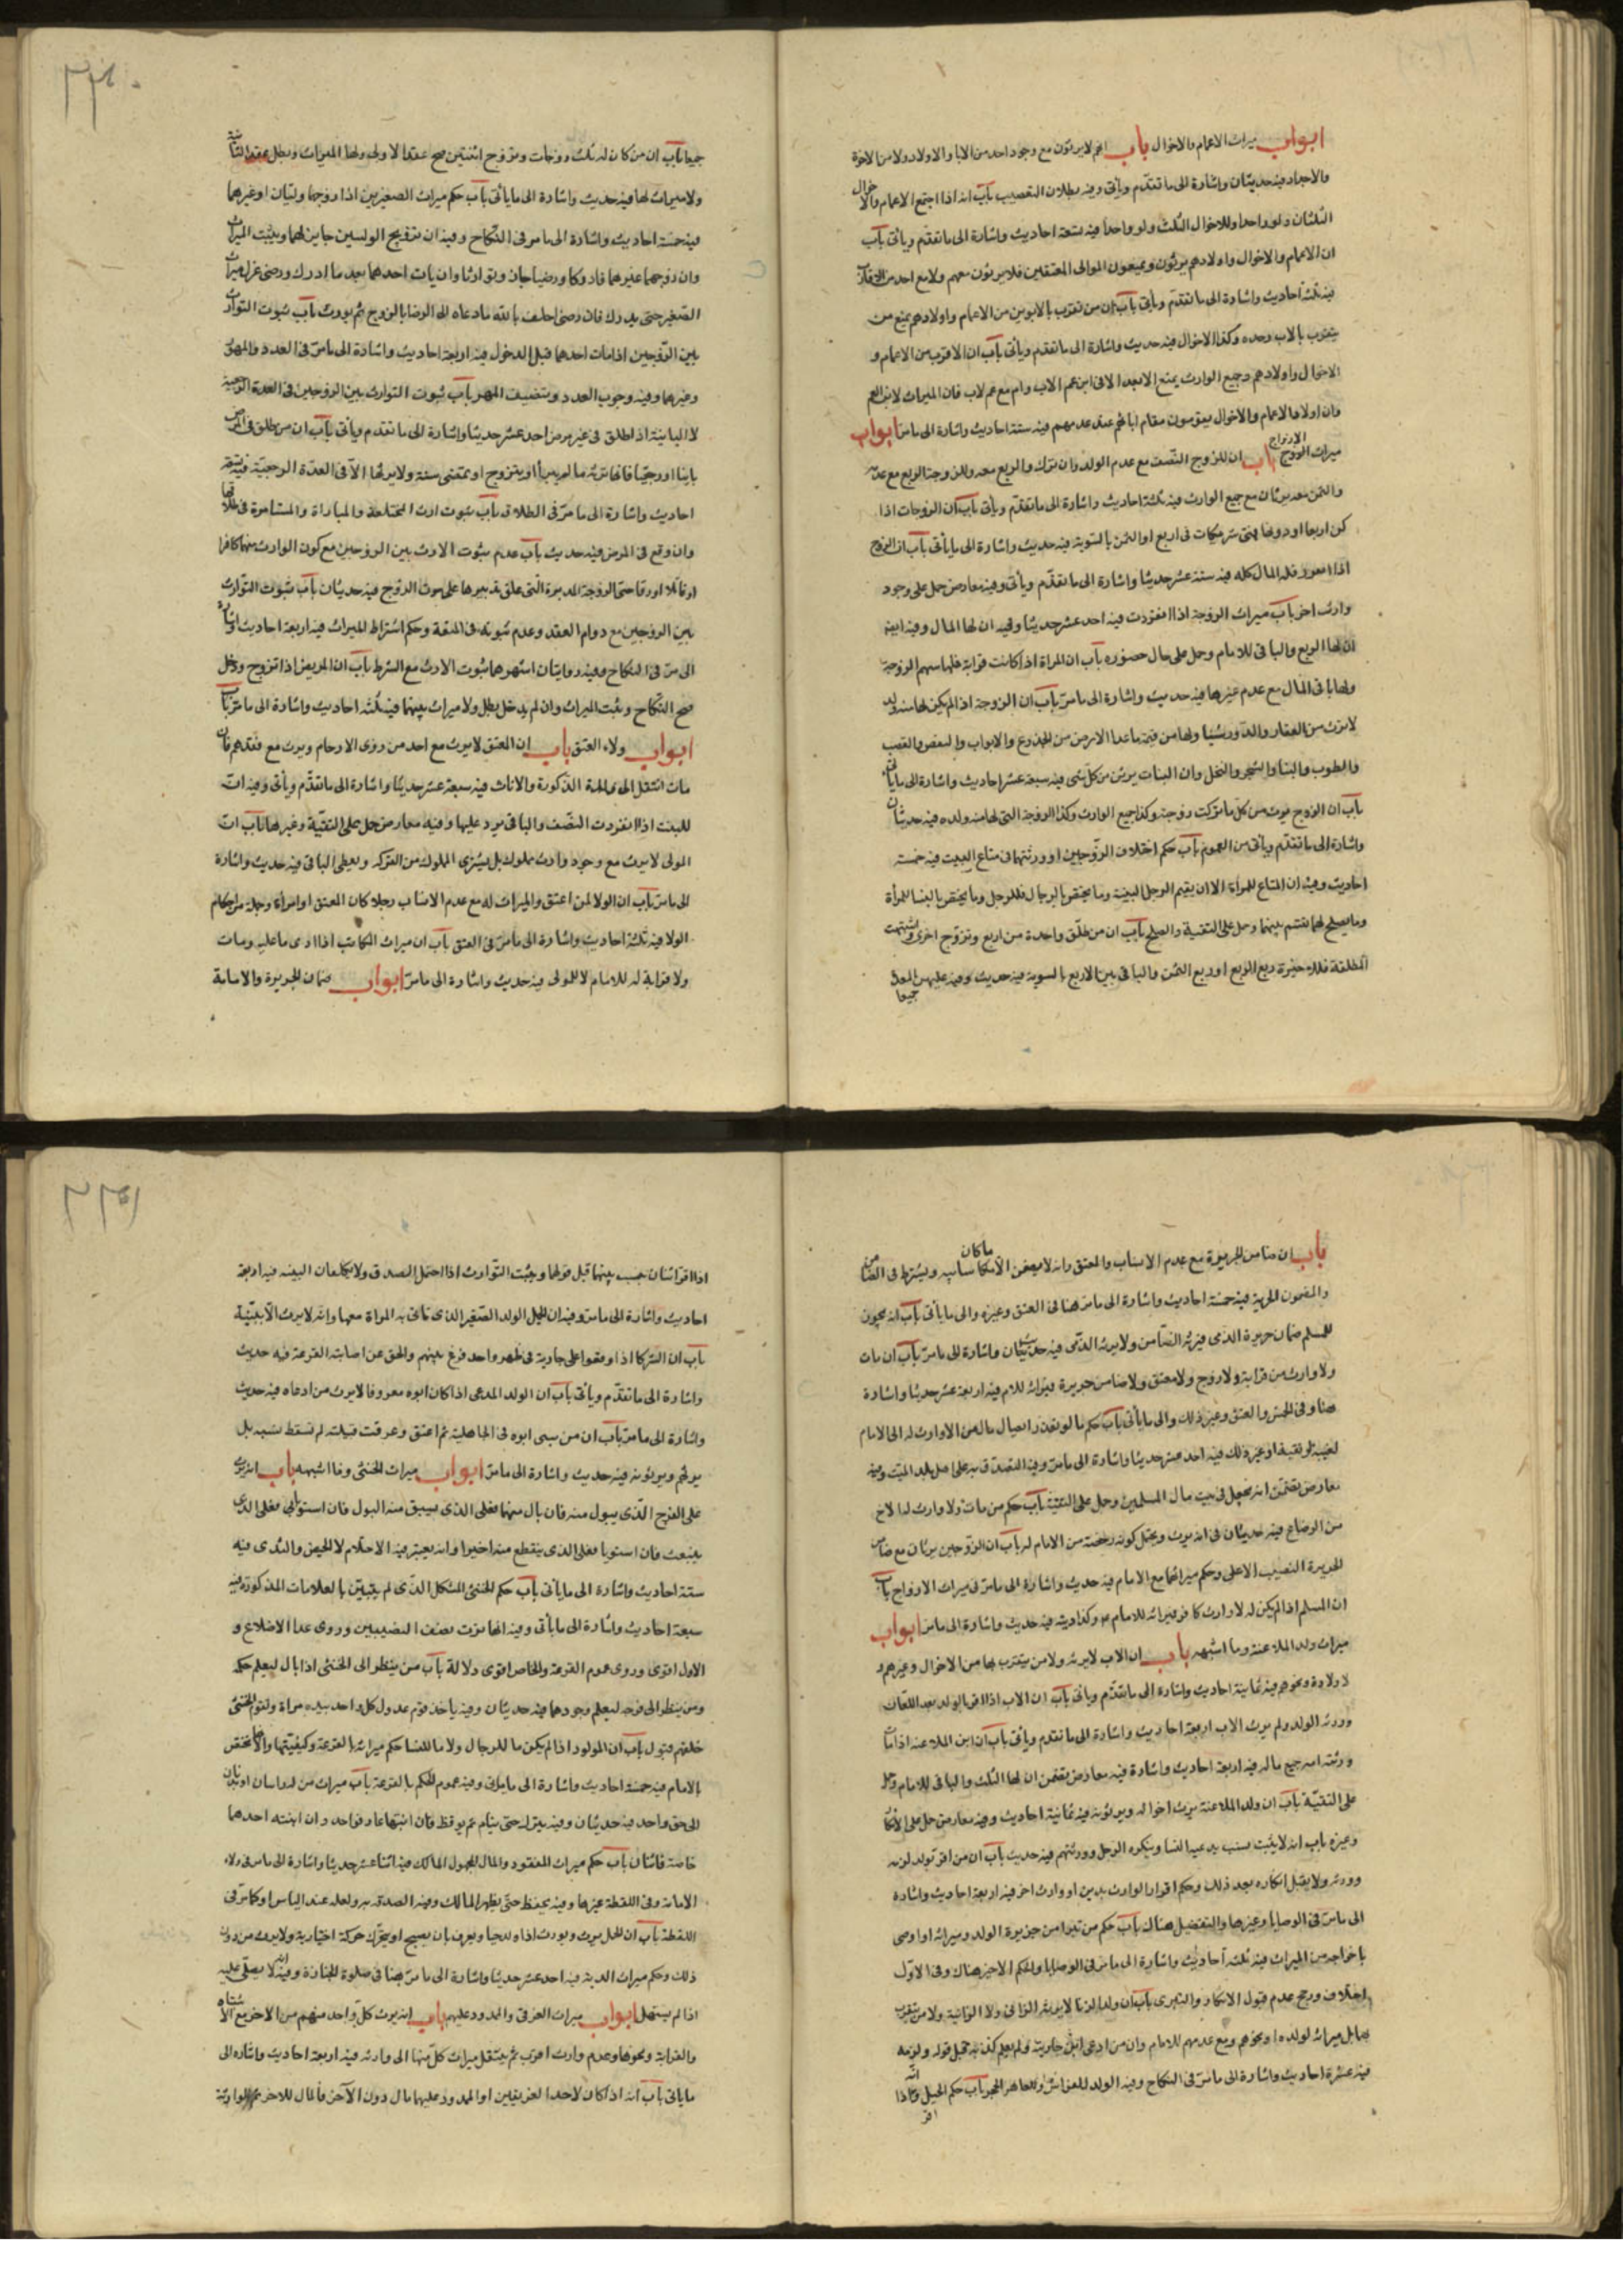 ابواب ميراث الاعمام والاخوال باب انهم لا يرثون مع وجود احد من الابا والاولاد ولا من الاخوة
والاجداد فيه حديثان واشارة الى ما تقدّم ويأتى وفيه بطلان التعصيب باب انه اذا اجتمع الاعمام والاخوال
الثلثان ولو واحدا وللاخوال الثلث ولو واحدا فيه سبعة احاديث واشارة الى ما تقدّم وياتى باب
ان الاعمام والاخوال واولادهم يرثون ويمنعون الموالى المعتقين فلا يرثون معهم ولا مع احد من الاقارب
فيه ثلثة احاديث واشارة الى ما تقدّم ويأتى باب ان من تقرّب بالابوين من الاعمام واولادهم يمنع من
يتقرب بالاب وحده وكذا الاخوال فيه حديث واشارة الى ما تقدم ويأتى باب ان الاقرب من الاعمام و
الاخوال واولادهم وجميع الوارث يمنع الابعد الا فى ابن عم الاب وام مع عم لاب فان الميراث لابن العم
وان اولاد الاعمام والاخوال يقومون مقام ابائهم عند عدمهم فيه ستة احاديث واشارة الى ما مرّ ابواب
ميراث الازواج باب ان للزوج النّصف مع عدم الولد وان نزل والربع معه وللزوجة الربع مع عدمه
والثمن معه يرثان مع جميع الوارث فيه ثلثة احاديث واشارة الى ما تقدّم ويأتى باب ان الزوجات اذا
كن اربعا او دونها فهنّ شريكات فى الربع او الثمن بالسّوية فيه حديث واشارة الى ما يأتى باب ان الزوج
اذا انفرد فله المال كله فيه ستة عشر حديثا واشارة الى ما تقدّم ويأتى وفيه معارض حمل على وجود
وارث اخر باب ميراث الزوجة اذا انفردت فيه احد عشر حديثا وفيه ان لها المال وفيه ايضا
ان لها الربع والباقى للامام وحمل على حال حضوره باب ان المراة اذا كانت قرابة فلها سهم الزوجة
ولها باقى المال مع عدم غيرها فيه حديث واشارة الى ما مرّ باب ان الزوجة اذا لم يكن لها منه ولد
لا ترث من العقار والدّور شيئا ولها من قيمة ما عدا الارض من الجذوع والابواب والنقض والقصب
والطوب والبنا والشجر والنخل وان البنات يرثن من كلّ شىء فيه سبعة عشر احاديث واشارة الى ما يأتى
باب ان الزوج يرث من كلّ ما تركت زوجته وكذا جميع الوارث وكذا الزوجة التى لها منه ولد فيه حديثان
واشارة الى ما تقدّم ويأتى من العموم باب حكم اختلاف الزّوجين او ورثتهما فى متاع البيت فيه خمسة
احاديث وفيه ان المتاع للمراة الا ان يقيم الرجل البينة وما يختص بالرجال فللرجل وما يختص بالنسا للمرأة
وما يصلح لهما يقسم بينهما وحمل على التقية والصلح باب ان من طلّق واحدة من اربع وتزوّج اخرى واشتبهت
المطلقة فللاخيرة ربع الربع او ربع الثمن والباقى بين الاربع بالسوية فيه حديث وفيه عليهن العدة
جميعا
جميعا باب ان من كان له ثلث زوجات وتزوج اثنتين صح عقد الاولى ولها الميراث وبطل عقد الثانية
ولا ميراث لها فيه حديث واشارة الى ما يأتى باب حكم ميراث الصغيرين اذا زوجهما وليّان او غيرهما
فيه خمسة احاديث واشارة الى ما مر فى النّكاح وفيه ان تزويج الوليين جايز لهما ويثبت الميراث
وان زوجهما غيرهما فادركا ورضيا جاز وتوارثا وان مات احدهما بعد ما ادرك ورضى عزل ميراث
الصّغير حتى يدرك فان رضى احلف بالله ما دعاه الى الرضا بالزوج ثم يورث باب ثبوت التوارث
بين الزّوجين اذا مات احدهما قبل الدخول فيه اربعة احاديث واشارة الى ما مرّ فى العدد والمهور
وغيرهما وفيه وجوب العدد وتنصيف المهر باب ثبوت التوارث بين الزوجين فى العدة الرجعية
لا البائنة اذا طلق فى غير مرض احد عشر حديثا واشارة الى ما تقدّم ويأتى باب ان من طلق فى المرض
باينا او رجعيا فانها ترثه ما لم يبرأ او يتزوج او تمضى سنة ولا يرثها الاّ فى العدّة الرجعيّة فيه تسعة
احاديث واشارة الى ما مرّ فى الطلاق باب ثبوت ارث المختلعة والمباراة والمستامرة فى طلاقها
وان وقع فى المرض فيه حديث باب عدم ثبوت الارث بين الزوجين مع كون الوارث منهما كافرا
او قاتلا او رقا حتى الزوجة المدبرة الّتى علق تدبيرها على موت الزوج فيه حديثان باب ثبوت التّوارث
بين الزوجين مع دوام العقد وعدم ثبوته فى المتعة وحكم اشتراط الميراث فيه اربعة احاديث واشارة
الى ما مرّ فى النكاح وفيه روايتان اشهرهما ثبوت الارث مع الشرط باب ان المريض اذا تزوج ودخل
صح النّكاح وثبت الميراث وان لم يدخل بطل ولا ميراث بينهما فيه ثلثة احاديث واشارة الى ما مرّ ويأتى
ابواب ولاء العتق باب ان المعتق لا يرث مع احد من ذوى الارحام ويرث مع فقدهم فان
مات انتقل الى الذكورة والاناث فيه سبعة عشر حديثا واشارة الى ما تقدّم ويأتى وفيه انّ
للبنت اذا انفردت النّصف والباقى يرد عليها وفيه معارض حمل على التقيّة وغيرها باب انّ
المولى لا يرث مع وجود وارث مملوك بل يشترى المملوك من التركة ويعطى الباقى فيه حديث واشارة
الى ما مرّ باب ان الولا لمن اعتق والميراث له مع عدم الانساب رجلا كان المعتق او امرأة وجملة من احكام
الولا فيه ثلثة احاديث واشارة الى ما مرّ فى العتق باب ان ميراث المكاتب اذا ادى ما عليه ومات
ولا قرابة له للامام لا للمولى فيه حديث واشارة الى ما مرّ ابواب ضمان الجريرة والامامة
باب ان ضامن الجريرة مع عدم الانساب والمعتق وانه لا يضمن الاّ ما كان سائبه ويشترط فى الضامن
والمضمون الحرية فيه خمسة احاديث واشارة الى ما مرّ هنا فى العتق وغيره والى ما يأتى باب انه يجوز
للمسلم ضمان جريرة الذمى فيرثه الضّامن ولا يرثه الذّمى فيه حديثان واشارة الى ما مرّ باب ان مات
ولا وارث من قرابة ولا زوج ولا معتق ولا ضامن جريرة فميراثه للامام فيه اربعة عشر حديثا واشارة
هنا وفى الخمس والعتق وغير ذلك والى ما يأتى باب حكم ما لو تعذر ايصال مال من لا وارث له الى الامام
لغيبة او تقية او غير ذلك فيه احد عشر حديثا واشارة الى ما مرّ وفيه التصدّق به على اهل بلد الميّت وفيه
معارض يتضمّن انه يجعل فى بيت مال المسلمين وحمل على التقيّة باب حكم من مات ولا وارث له الا اخ
من الرضاع فيه حديثان فى انه يرث ويحتمل كونه رخصة من الامام له باب ان الزّوجين يرثان مع ضامن
الجريرة النصيب الاعلى وحكم ميراثهما مع الامام فيه حديث واشارة الى ما مرّ فى ميراث الازواج باب
ان المسلم اذا لم يكن له الا وارث كافر فميراثه للامام م وكذا ديته فيه حديث واشارة الى ما مرّ ابواب
ميراث ولد الملاعنة وما اشبهه باب ان الاب لا يرثه ولا من يتقرب بها من الاخوال وغيرهم و
لا ولاده ونحوهم فيه ثمانية احاديث واشارة الى ما تقدّم ويأتى باب ان الاب اذا اقرّ بالولد بعد اللّعان
ورثه الولد ولم يرث الاب اربعة احاديث واشارة الى ما تقدم ويأتى باب ان ابن الملاعنة اذا مات
ورثته امه جميع ماله فيه اربعة احاديث واشارة فيه معارض يتضمن ان لها الثلث والباقى للامام وحمل
على التقيّة باب ان ولد الملاعنة يرث اخواله ويرثونه فيه ثمانية احاديث وفيه معارض حمل على الانكار
وغيره باب انه لا يثبت نسب يدعيه النسا وينكره الرجل وورثتهم فيه حديث باب ان من اقر بولد لزمه
وورثه ولا يقبل انكاره بعد ذلك وحكم اقرار الوارث بدين او وارث اخر فيه اربعة احاديث واشارة
الى ما مرّ فى الوصايا وغيرها والتفصيل هناك باب حكم من تبرا من جريرة الولد وميراثه او اوصى
باخراجه من الميراث فيه ثلثة احاديث واشارة الى ما مرّ فى الوصايا والحكم الاخير هناك وفى الاوّل
اختلاف ورجح عدم قبول الانكار والتبرى باب ان ولد الزنا لا يرثه الزانى ولا الزانية ولا من يتقرب
بهما بل ميراثه لولده او نحوهم ومع عدمهم للامام وان من ادعى ابن جارية ولم يعلم كذبه قبل قوله ولزمه
فيه عشرة احاديث واشارة الى ما مرّ فى النكاح وفيه الولد للفراش وللعاهر الحجر باب حكم الحميل وانّه اذا
اقرّ
اذا اقر اثنان بنسب بينهما قبل قولهما ويثبت التّوارث اذا احتمل الصدق ولا يكلفان البينه فيه اربعة
احاديث واشارة الى ما مرّ وفيه ان الحميل الولد الصّغير الذى تأتى به المراة معها وانه لا يرث الاّ ببيّنة
باب ان الشركا اذا وقعوا على جارية فى طهر واحد قرع بينهم والحق من اصابته القرعة فيه حديث
واشارة الى ما تقدّم وياتى باب ان الولد المدعى اذا كان ابوه معروفا لا يرث من ادعاه فيه حديث
واشارة الى ما مرّ باب ان من سبى ابوه فى الجاهلية ثم اعتق وعرفت قبيلته لم يسقط نسبه بل
يرثهم ويرثونه فيه حديث واشارة الى ما مرّ ابواب ميراث الخنثى وما اشبهه باب انه يرث
على الفرج الّذى يبول منه فان بال منهما فعلى الذى يسبق منه البول فان استويا فعلى الذى
ينبعث فان استويا فعلى الذى ينقطع منه اخيرا وانه يعتبر فيه الاحتلام والحيض والثدى فيه
ستة احاديث واشارة الى ما يأتى باب حكم الخنثى المشكل الذّى لم يتبيّن بالعلامات المذكورة فيه
سبعة احاديث واشارة الى ما يأتى وفيه انها ترث نصف النصيبين وروى عدا الاضلاع و
الاول اقوى وروى عموم القرعة والخاص اقوى دلالة باب من ينظر الى الخنثى اذا بال ليعلم حكمه
ومن ينظر الى فرجه ليعلم وجودهما فيه حديثان وفيه ياخذ قوم عدول كل واحد بيده مراة وتقوم الخنثى
خلفهم فتبول باب ان المولود اذا لم يكن ما للرجال ولا ما للنسا حكم ميراثه بالقرعة وكيفيّتها وانها تختص
بالامام فيه خمسة احاديث واشارة الى ما يأتى وفيه عموم الحكم بالقرعة باب ميراث من له راسان او بدنان
الى حق واحد فيه حديثان وفيه يترك حتى ينام ثم يوقظ فان انتبها معا فواحد وان انتبه احدهما
خاصة فاثنان باب حكم ميراث المفقود والمال المجهول المالك فيه اثنا عشر حديثا واشارة الى ما مرّ فى ولاء
الامامة وفى اللقطة وغيرها وفيه يحفظ حتّى يظهر المالك وفيه الصدقة به ولعله عند الياس او كما مرّ فى
اللقطة باب ان الحمل يرث ويورث اذا ولد حيا ويعرف بان يصيح او يتحرّك حركة اختيارية ولا يرث من دون
ذلك وحكم ميراث الدية فيه احد عشر حديثا واشارة الى ما مرّ هنا فى صلوة الجنازة وفيه انّه لا يصلّى عليه
اذا لم يستهل ابواب ميراث الغرقى والمهدوم عليهم باب انه يرث كلّ واحد منهم من الاخر مع الاشتباه
والقرابة ونحوها وعدم وارث اقرب ثم ينتقل ميراث كلّ منهما الى وارثه فيه اربعة احاديث واشاره الى
ما ياتى باب انه اذا كان لاحد الغريقين او المهدوم عليهما مال دون الآخر فالمال للاخر ثم لوارثه